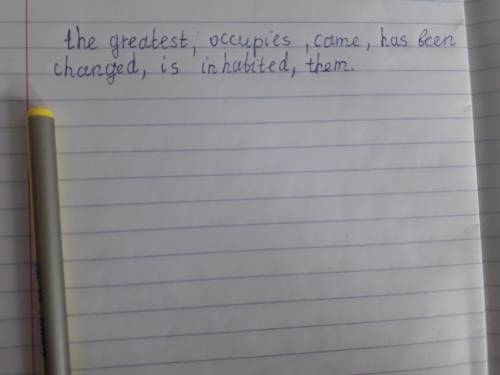 the greatest, occupies, came, has been
changed, is inhabited, them.